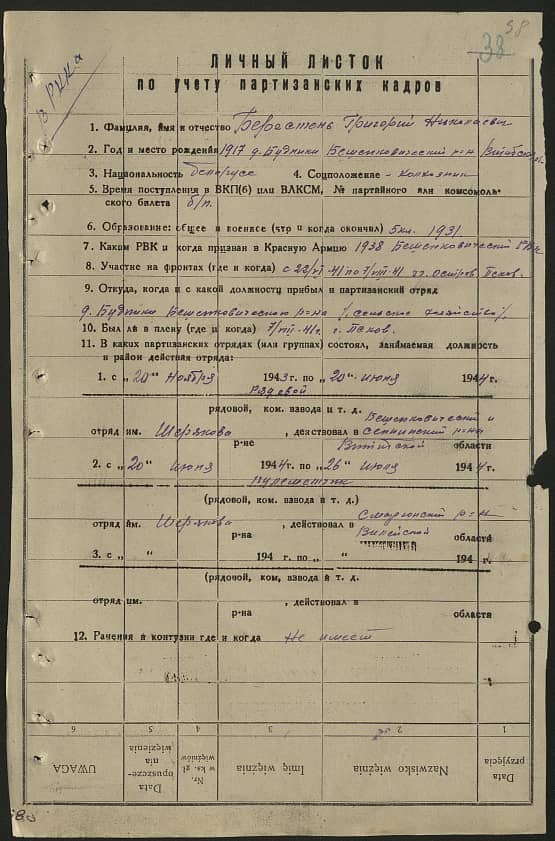 38
38
в РККА
ЛИЧНЫЙ ЛИСТОК
по учету партизанских кадров
1. Фамилия, имя и отчество Берестень Григорий Николаевич
2. Год и место рождения 1917 д. Будники Бешенковичский р-н Витебской
3. Национальность белорусс 4. Соцположение - колхозник
5. Время поступления в ВКП(б) или ВЛКСМ, № партийного или комсомоль-
ского билета б/п.
6. Образование: общее и военное (что и когда окончил) 5 кл. 1931.
7. Каким РВК и когда призван в Красную Армию 1938 Бешенковичский РВК
8. Участие на фронтах (где и когда) с 22/VI-41 по 7/VIII-41 гг. Остров, Псков.
9. Откуда, когда и с какой должности прибыл в партизанский отряд
д. Будники Бешенковичского р-на /сельское хозяйство/.
10. Был ли в плену (где и когда) 7/VIII-41г. г. Псков.
11. В каких партизанских отрядах (или группах) состоял, занимаемая должность
и район действия отряда:
1. с „20“ Ноября 1943 г. по „20“ июня 1944 г.
рядовой
рядовой, ком. взвода и т. д. Бешенковический и
отряд им. , действовал в Сеннинский р-нах
р-не области
2. с „20“ июня 1944 г. по „26“ июня 1944 г.
пулеметчик
(рядовой, ком. взвода и т. д.)
отряд им. , действовал в р-н
р-на Вилейской области
3. с „ “ 194 г. по „ “ 194 г.
(рядовой, ком, взвода и т. д.
отряд им. , действовал в
р-на области
12. Ранения и контузии где и когда Не имеет
6 5 4 3 2 1
UWAGA Data opuszcze-nia więzienia Nr. w ks. gł. więźniów Imię więźnia Nazwisko więźnia Data przyjęcia